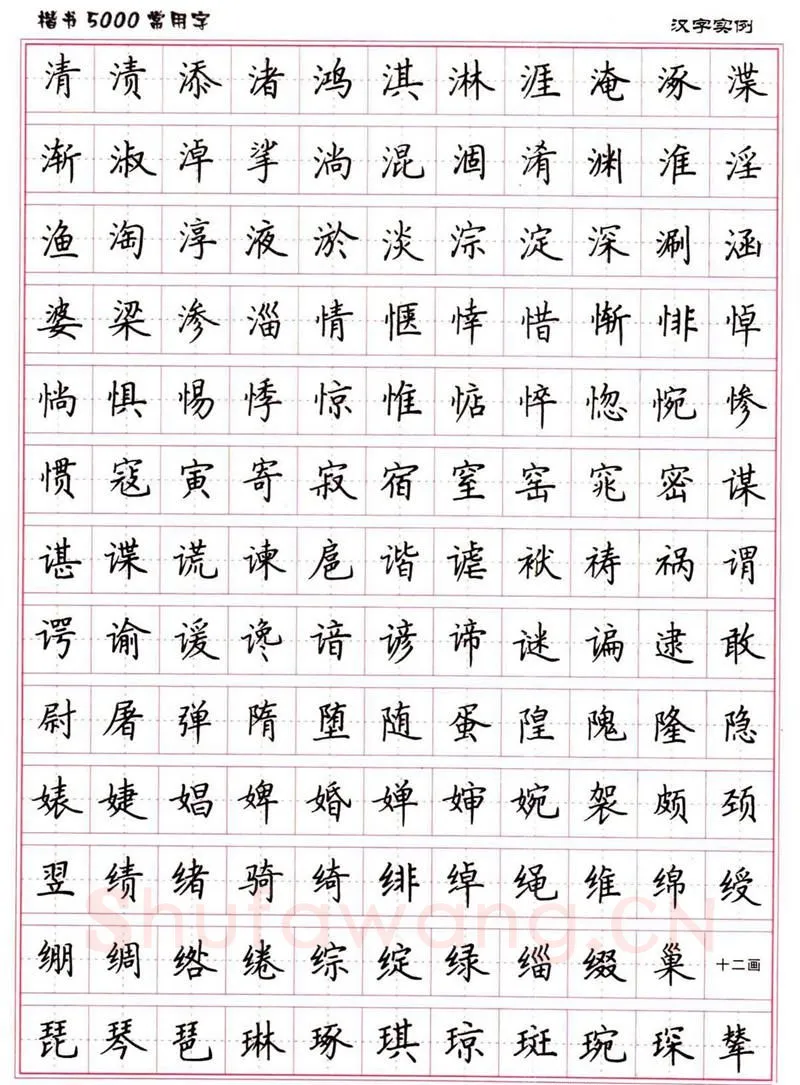 楷书5000常用字
汉字实例
清渍添渚鸿淇淋涯淹涿渫
渐淑淖挲淌混涸淆渊淮淫
渔淘淳液淤淡淙淀深涮涵
婆梁渗淄情惬悻惜惭悱悼
惝惧惕悸惊惟惦悴惚惋惨
惯寇寅寄寂宿窒窑窕密谋
谌谍谎谏扈谐谑袱祷祸谓
谔谕谖谗谙谚谛谜谝逮敢
尉屠弹隋堕随蛋隍隗隆隐
婊婕娼婢婚婵婶婉袈颇颈
翌绩绪骑绮绯绰绳维绵绶
绷绸绺绻综绽绿缁缀巢十二画
琵琴琶琳琢琪琼斑琬琛辇
Shufawang.CN